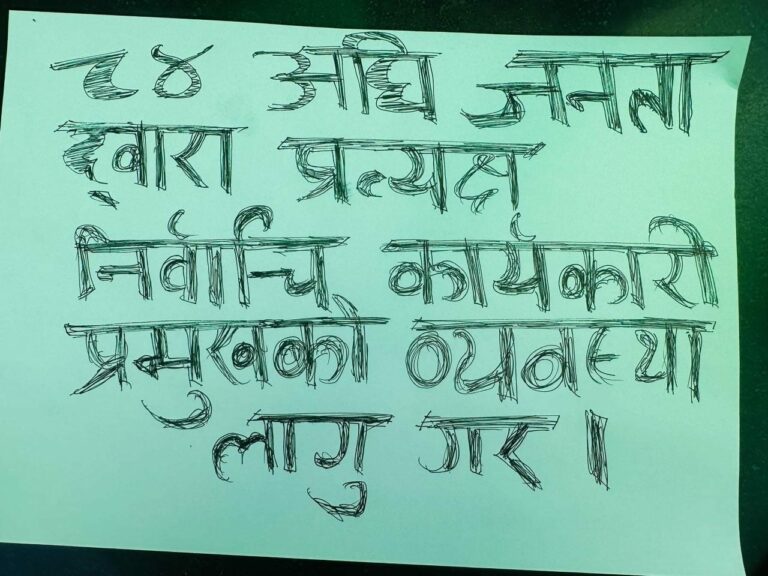 ८४ अघि जनता
द्वारा प्रत्यक्ष
निर्वाचि कार्यकारी
प्रमुखको व्यवस्था
लागु गर ।